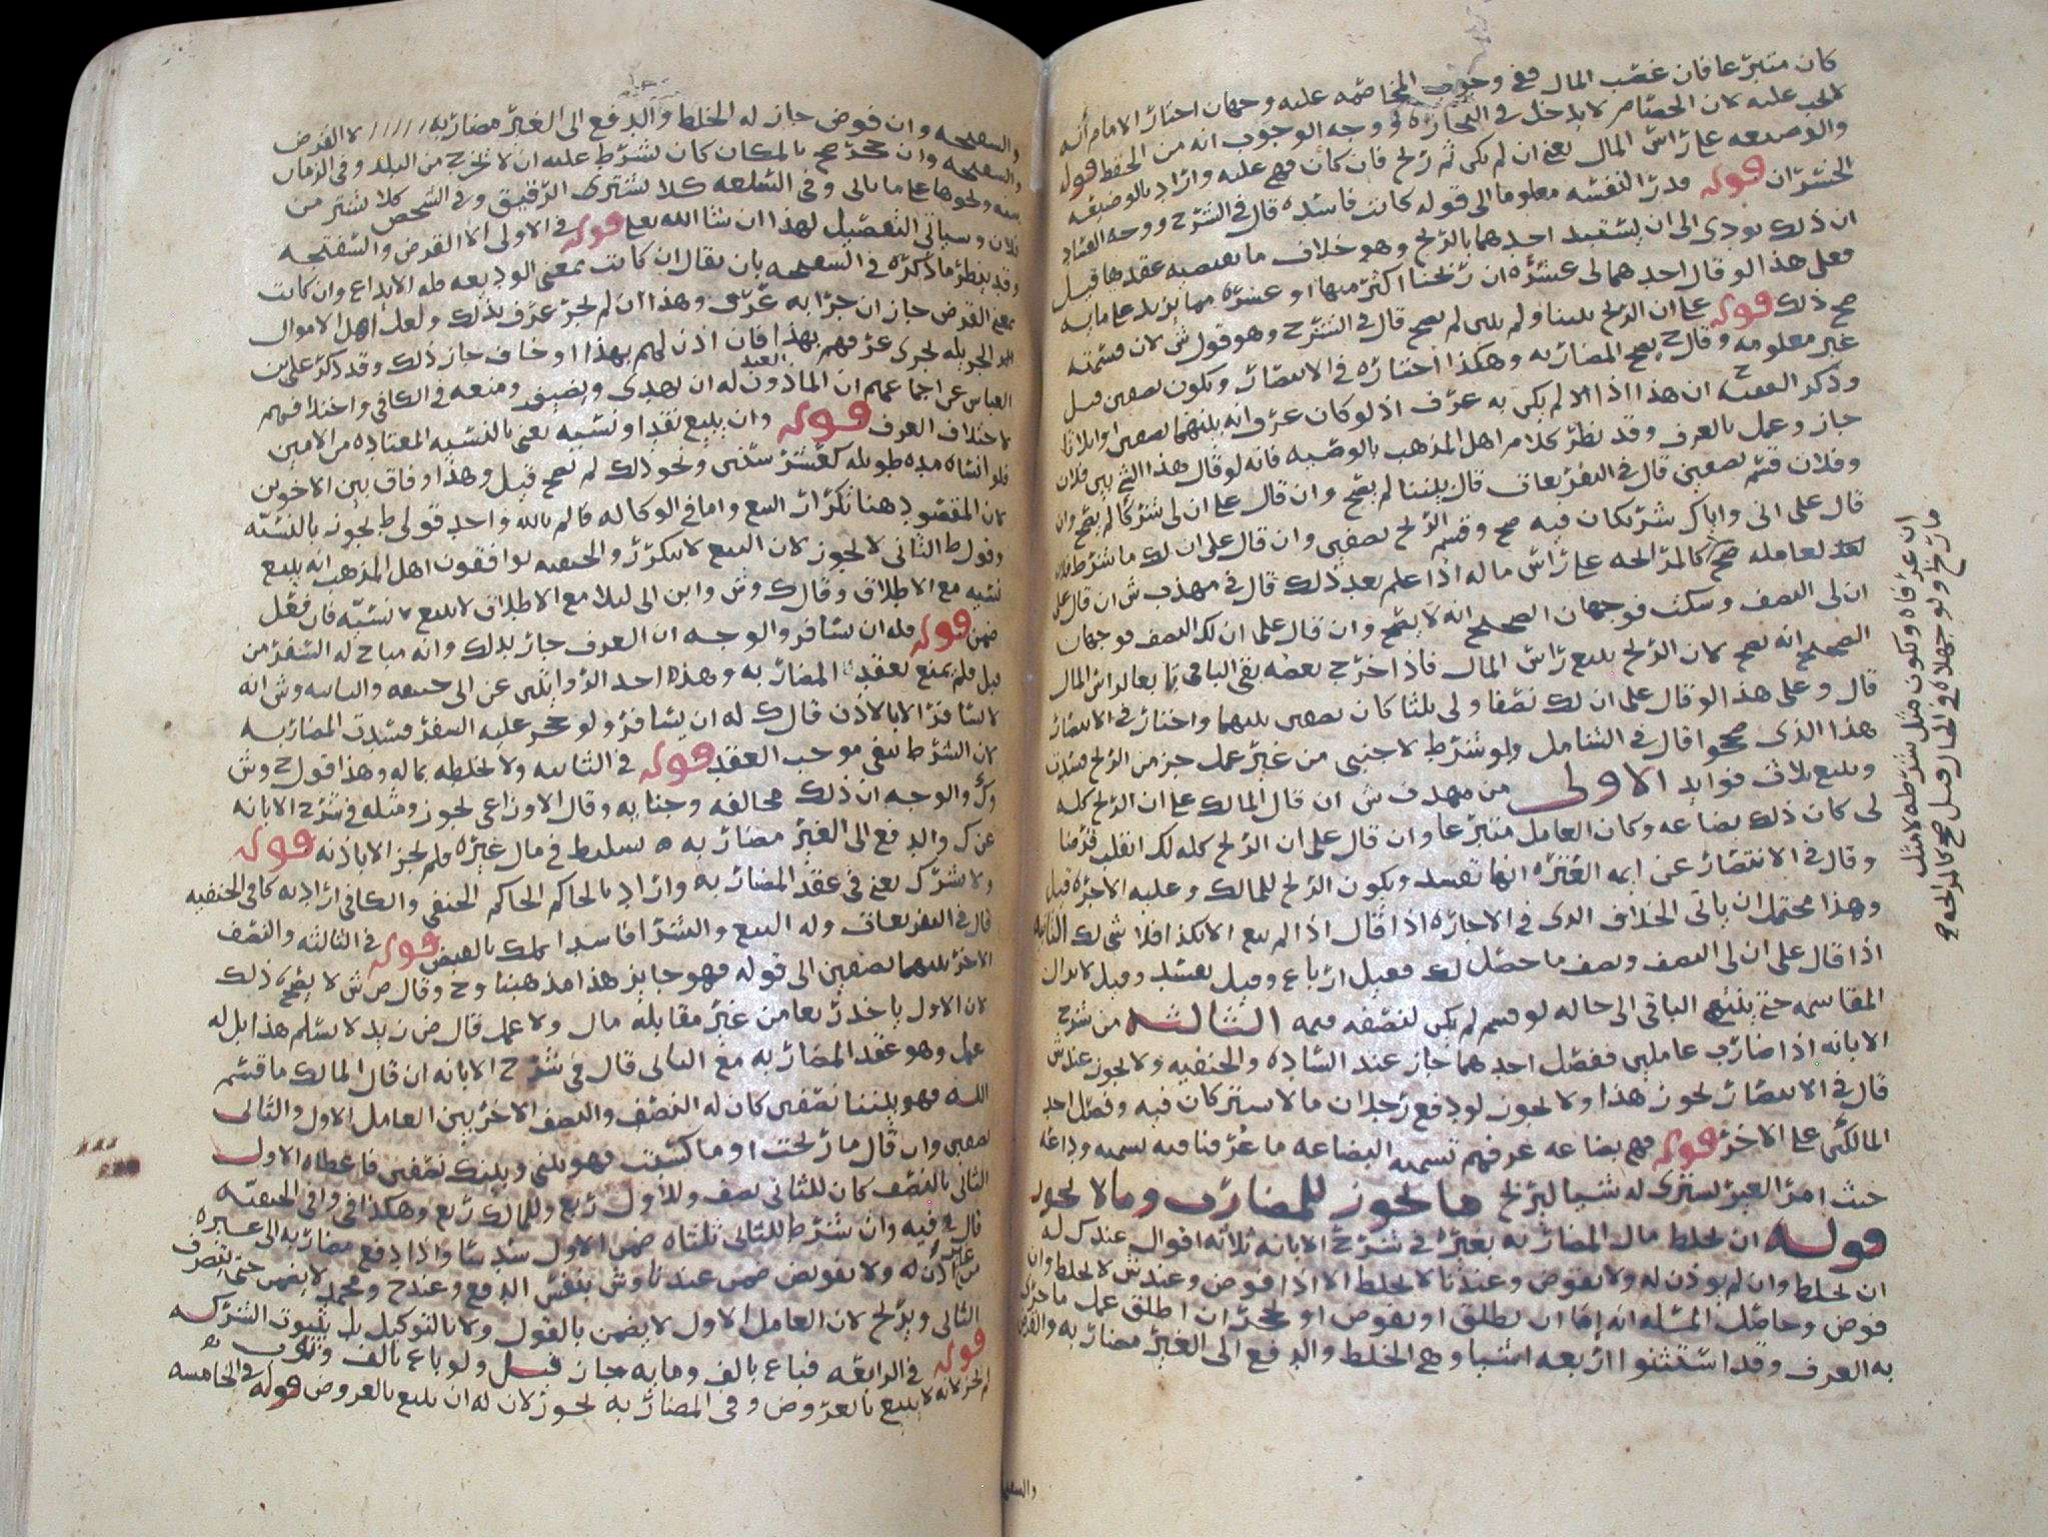 كان متبرعا فان غصب المال ففي وجوب المخاصمه عليه وجهان اختار الامام انه
لا يجب عليه لان الخصام لا يدخل في التجاره ووجه الوجوب انه من الحفظ قوله
والوضيعه على راس المال يعني ان لم يكن ثم ربح فان كان فهي عليه واراد بالوضيعه
الخسران قوله قدرا لنفسه معلوما الى قوله كانت فاسده قال في الشرح ووجه الفساد
ان ذلك يودي الى ان يستبد احدهما بالربح وهو خلاف ما يقتضيه عقدها قيل
فعلى هذا لو قال احدهما لي عشره ان ربحنا اكثر منها او عشره مما يزيد على مايه
صح ذلك قوله على ان الربح بيننا ولم يبين لم يصح قال في الشرح وهو قول ش لان قسمته
غير معلومه وقال ح يصح المضاربه وهكذا اختاره في الانتصار ويكون نصفين قيل
وذكر الفقيه ح ان هذا اذا لم يكن به عرف اذ لو كان عرف انه بينهما نصفين او اثلاثا
جاز وعمل بالعرف وقد نظر كلام اهل المذهب بالوصيه فانه لو قال هذا الشي بين فلان
وفلان قسم نصفين قال في التفريعات قال بيننا لم يصح وان قال على ان لي شركا لم يصح وان
قال على اني واياك شريكان فيه صح وقسم الربح نصفين وان قال على ان لك ما شرط فلان
لعامله صح كالمرابحه على راس ماله اذا علم بعد ذلك قال في مهذب ش ان قال على
ان لي النصف وسكت فوجهان الصحيح انه لا يصح وان قال على ان لك النصف فوجهان
الصحيح انه يصح لان الربح يتبع راس المال فاذا اخرج بعضه بقى الباقي تابعا لراس المال
قال وعلى هذا لو قال على ان لك نصفا ولي ثلثا كان نصفين بينهما واختار في الانتصار
هذا الذي صححوا قال في الشامل ولو شرط لاجنبي من غير عمل جزء من الربح فسدت
ويتبع بثلاث فوايد الاولى من مهذب ش ان قال المالك على ان الربح كله
لي كان ذلك بضاعه وكان العامل متبرعا وان قال على ان الربح كله لك انقلب قرضا
وقال في الانتصار عن ايمه العتره انها تفسد ويكون الربح للمالك وعليه الاجره قيل
وهذا محتمل ان ياتي الخلاف الذي في الاجاره اذا قال اذا لم يبع الا بكذا فلا شي لك الثانيه
اذا قال على ان لي النصف ونصف ما حصل لك فقيل ارباع وقيل يفسد وقيل لا يزال
المقاسمه حتى ينتهي الباقي الى حاله لو قسم لم يكن لنصفه قيمه الثالثه من شرح
الابانه اذا ضارب عاملين ففضل احدهما جاز عند الساده والحنفيه ولا يجوز عند ش
قال في الانتصار يجوز هذا ولا يجوز لو دفع رجلان مالا يشتركان فيه وفضل احد
المالكين على الاخر قوله فهي بضاعه عرفهم تسميه البضاعه ما عرفنا فيه تسميه وداعه
حيث امر الغير ليشتري له شيا ليربح ما يجوز للمضارب وما لا يجوز
قوله ان يخلط مال المضاربه بغيره في شرح الابانه ثلاثه اقوال عند ك له
ان يخلط وان لم يوذن له ولا يفوض وعندنا لا يخلط الا اذا فوض وعند ش لا يخلط وان
فوض وحاصل المسله انه اما ان يطلق او يفوض او يحجر ان اطلق عمل ما جرى
به العرف وقد استثنوا اربعه اشيا وهي الخلط والدفع الى الغير مضاربه والقرض
ان عرفاه ويكون مثل شرطه لا مثل
ما ربح ولو جهلاه في الحال قيل صح كالمرابحه ح
والسفتجه وان فوض جاز له الخلط والدفع الى الغير مضاربه لا القرض
والسفتجه وان حجر صح بالمكان كان يشرط عليه ان لا يخرج من البلد وفي الزمان
سنه ونحوها على ما ياتي وفي السلعه كلا يشتري الرقيق وفي الشخص كلا يشتر من
فلان وسياتي التفصيل لهذا ان شا الله تعلى قوله في الاولى الا القرض والسفتجه
وقد ينظر ما ذكره في السفتجه بان يقال ان كانت بمعنى الوديعه فله الايداع وان كانت
بمعنى القرض جاز ان جرا به عرف وهذا ان لم يجر عرف بذلك ولعل اهل الاموال
الجزيله يجري عرفهم بهذا فان اذن لهم بهذا او خاف جاز ذلك وقد ذكر على بن
العباس عن اجماعهم ان الماذون العبد له ان يهدى ويضيف ومنعه في الكافي واختلافهم
لاختلاف العرف قوله وان يبيع نقدا ونسيه يعنى بالنسيه المعتاده من الامين
فلو انشاه مده طويله كعشر سنين ونحو ذلك لم يصح قيل وهذا وفاق بين الاخوين
لان المقصود هنا تكرار البيع واما في الوكاله فالم بالله واحد قولي ط يجوز بالنسيه
وقول ط الثاني لا يجوز لان البيع لا يتكرر والحنفيه يوافقون اهل المذهب انه يبيع
نسيه مع الاطلاق وقال ك وش وابن ابي ليلا مع الاطلاق لا يبيع نسيه فان فعل
ضمن قوله فله ان يسافر والوجه ان العرف جار بذلك وانه مباح له السفر من
قبل فلم يمنع بعقد المضاربه وهذه احد الروايتين عن ابي حنيفه والثانيه وش انه
لا يسافر الا بالاذن قال ك له ان يسافر ولو حجر عليه السفر فسدت المضاربه
لان الشرط ينفي موجب العقد قوله في الثانيه ولا يخلطه بماله وهذا قول ح وش
وك والوجه ان ذلك مخالفه وجنايه وقال الاوزاعي يجوز ومثله في شرح الابانه
عن ك والدفع الى الغير مضاربه تسليط في مال غيره فلم يجز الا باذنه قوله
ولا شرك يعني في عقد المضاربه واراد بالحاكم الحاكم الحنفي والكافي اراد به كافي الحنفيه
قال في التفريعات وله البيع والشرا فاسدا يملك بالقبض قوله في الثالثه والنصف
الاخر بينهما نصفين الى قوله فهو جايز هذا مذهبنا وح وقال ص ش لا يصح ذلك
لان الاول ياخذ ربعا من غير مقابله مال ولا عمل قال ض زيد لا يسلم هذا بل له
عمل وهو عقد المضاربه مع الثاني قال في شرح الابانه ان قال المالك ما قسم
الله فهو بيننا نصفين كان له النصف والنصف الاخر بين العامل الاول والثاني
نصفين وان قال ما ربحت او ما كسبت فهو بيني وبينك نصفين فاعطاه الاول
الثاني بالنصف كان للثاني نصف وللاول ربع وللمالك ربع وهكذا في وافي الحنفيه
قال فيه وان شرط للثاني ثلثاه ضمن الاول سدسا واذا دفع مضاربه الى غيره
من غير اذن له ولا تفويض ضمن عندنا وش بنفس الدفع وعند ح ومحمد لا يضمن حتى يتصرف
الثاني ويربح لان العامل الاول لا يضمن بالقول ولا بالتوكيل بل بثبوت الشركه
قوله في الرابعه فباع بالف ومايه جاز قيل ولو باع بالف وثوب
لم يجز لانه لا يبيع بالعروض وفي المضاربه يجوز لان له ان يبيع بالعروض قوله في الخامسه